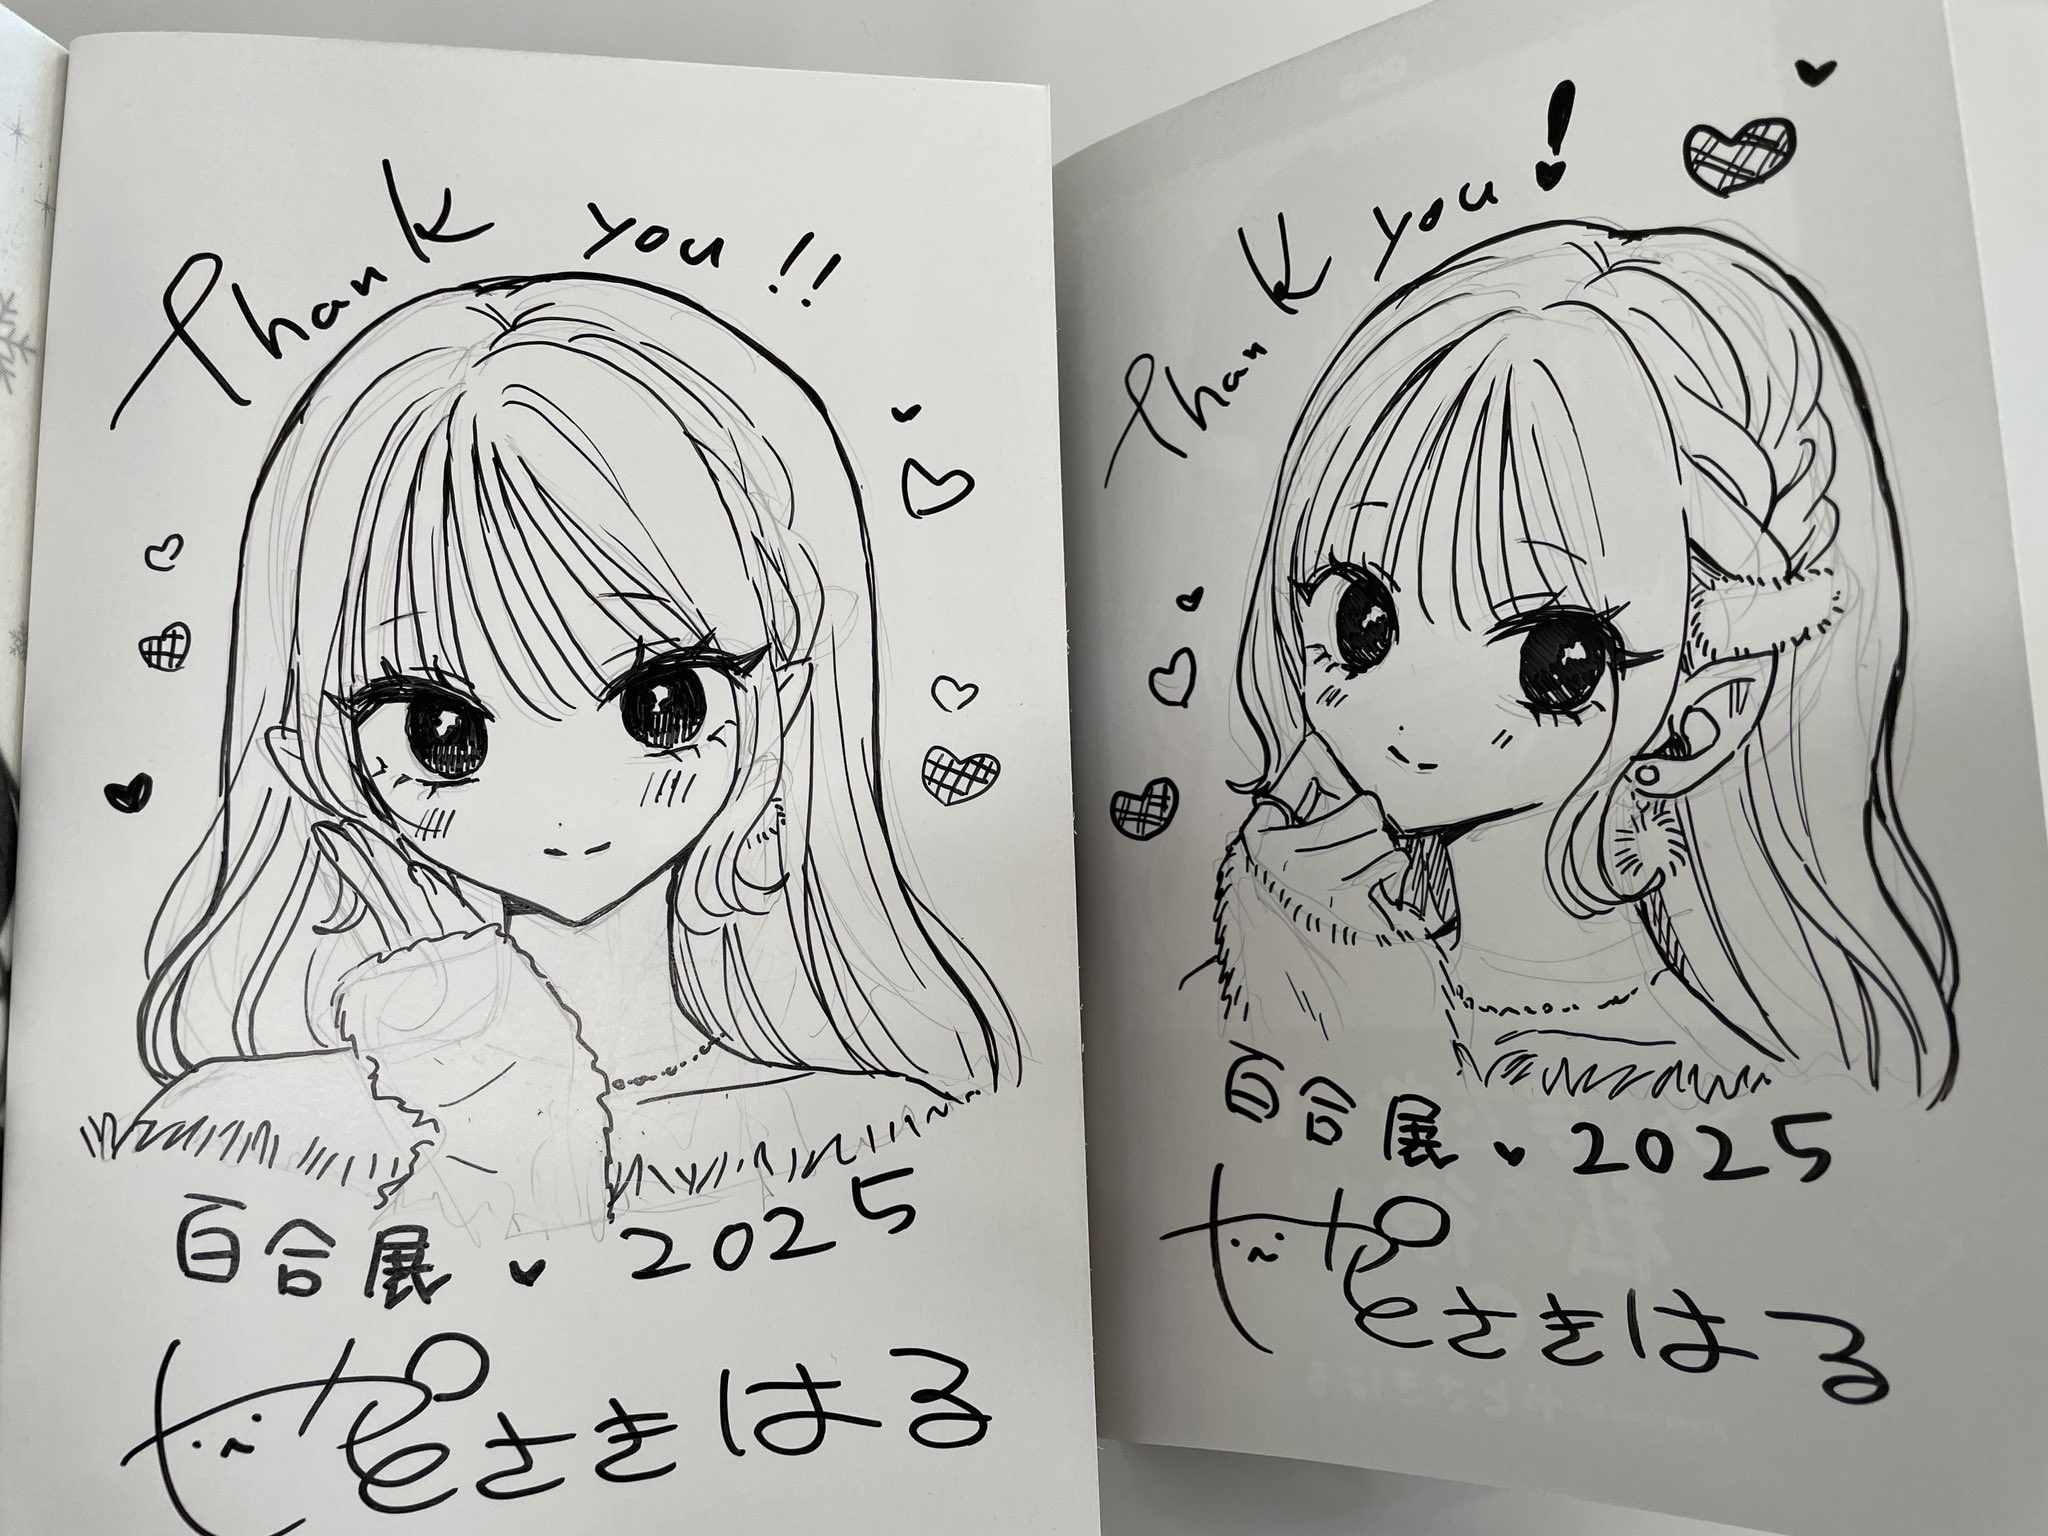 Thank you!!
百合展♥2025
やとさきはる
Thank you!
百合展♥2025
やとさきはる